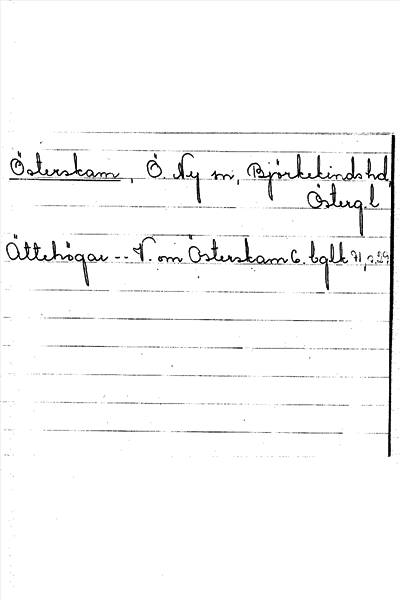 Österskam, Ö. Ny sn, Björkekinds hd,
Österg. l
Ättehögar -- V. om Österskam C. bglt 71, s. 29